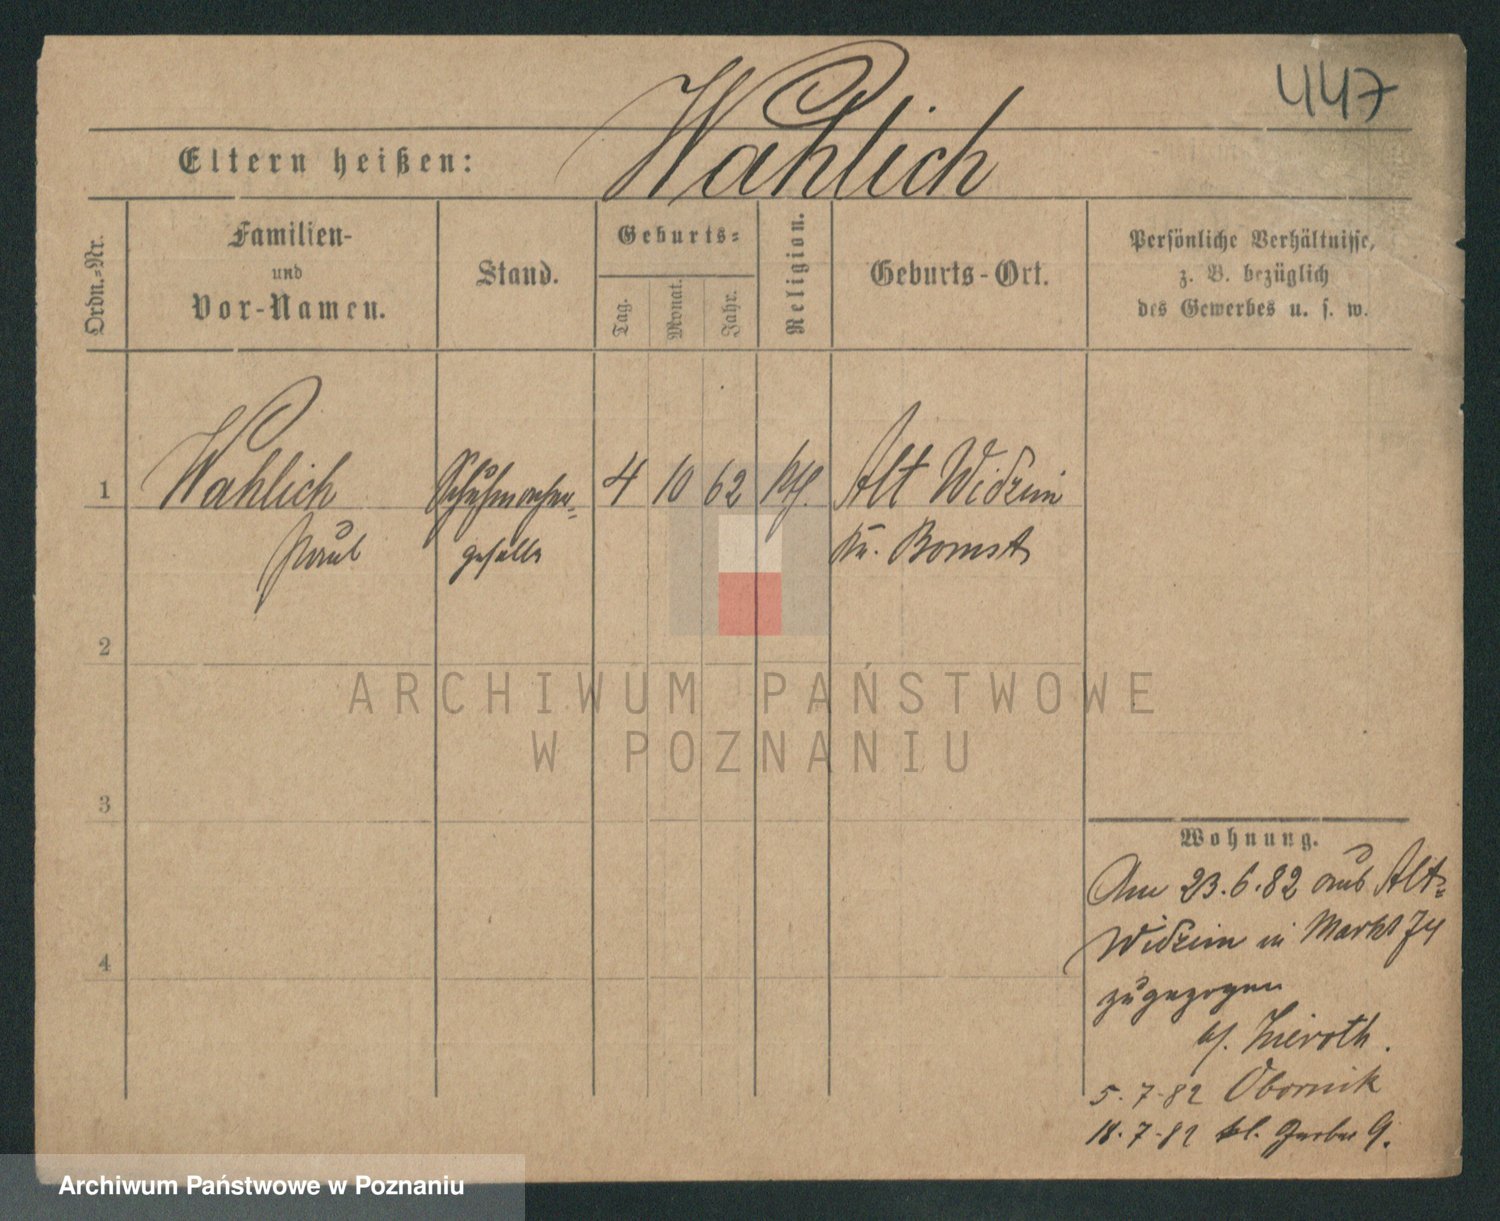 447
Wahlich
Eltern heißen:
Ordn.-Nr.
Familien-
und
Vor-Namen.
Stand.
Geburts-
Tag.
Monat.
Jahr.
Religion.
Geburts-Ort.
Persönliche Verhältnisse,
z. B. bezüglich
des Gewerbes u. s. w.
1 Wahlich Schuhmacher- 4 10 62 Alt Widzim
Paul geselle Kr. Bomst
2
3
4
Wohnung.
Am 23.6.82 aus Alt-
Widzim in Markt 74
zugezogen
b/. Zieroth.
5.7.82 Obornik
18.7.82 kl. Gerber 9.
ARCHIWUM PAŃSTWOWE
W POZNANIU
Archiwum Państwowe w Poznaniu